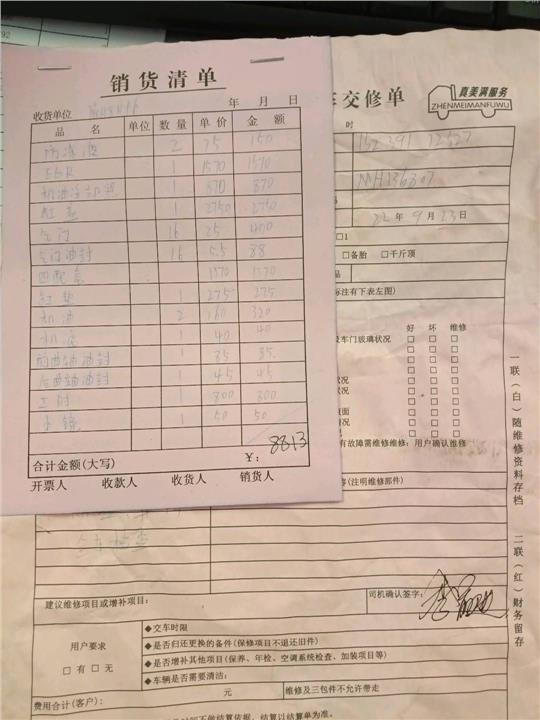 销货清单
收货单位
年 月 日
品 名 单位 数量 单价 金 额
防冻液 2 75 150
EGR 1 1570 1570
机油冷却器 1 870 870
缸盖 1 2750 2750
气门 16 25 400
气门油封 16 5.5 88
四配套 1570 1570
缸垫 1 275 275
机油 2 160 320
机滤 1 40 40
前曲轴油封 1 35 35
后曲轴油封 1 45 45
工时 1 300 300
1 50 50
合计金额(大写) ¥: 8813
开票人 收款人 收货人 销货人
车交修单
真美满服务
ZHENMEIMANFUWU
时
MH136307
22年9月23日
□1
□备胎 □千斤顶
品
标注有下表左图)
好 坏 维修
及车门玻璃状况 □ □ □
□ □ □
□ □ □
状况 □ □ □
状况 □ □ □
页面 □ □ □
况 □ □ □
有故障需维修维修:用户确认维修
(注明维修部件)
全车检查
建议维修项目或增补项目:
司机确认签字:
用户要求
□有 □无
◆交车时限
◆是否归还更换的备件(保修项目不退还旧件)
◆是否增补其他项目(保养、年检、空调系统检查、加装项目等)
◆车辆是否需要清洁:
费用合计(客户): 元 维修及三包件不允许带走
不做结算依据,结算以结算单为准。
一联(白)随维修资料存档 二联(红)财务留存